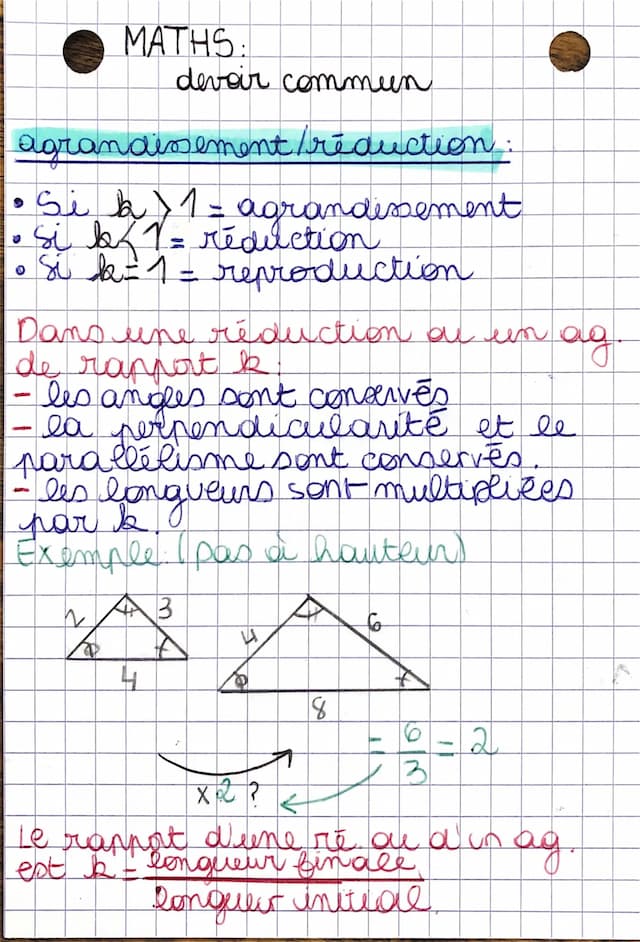 MATHS:
devoir commun
agrandissement/réduction :
• Si k > 1 = agrandissement
• Si k < 1 = réduction
• Si k = 1 = reproduction
Dans une réduction ou un ag.
de rapport k :
- les angles sont conservés
- la perpendicularité et le
parallélisme sont conservés.
- les longueurs sont multipliées
par k.
Exemple : (pas à hauteur)
2 3 4
4 6 8
= 6/3 = 2
x2 ?
Le rapport d'une ré. ou d'un ag.
est k = longueur finale
longueur initial.